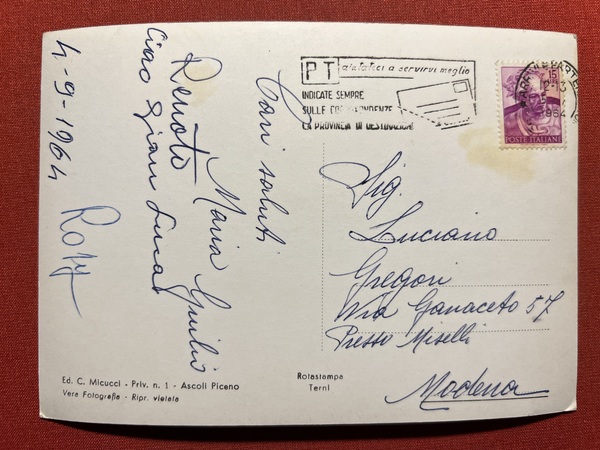 4-9-1964
Ciao Gian Luca
Renato
Maria Giulio
Cari saluti
Roly
PT aiutateci a servirvi meglio
INDICATE SEMPRE
SULLE CORRISPONDENZE
LA PROVINCIA DI DESTINAZIONE
15
POSTE ITALIANE
1964
Sig.
Luciano
Gregori
Via Ganaceto 57
Presso Miselli
Modena
Ed. C. Micucci - Priv. n. 1 - Ascoli Piceno
Vera Fotografia - Ripr. vietata
Rotostampa
Terni